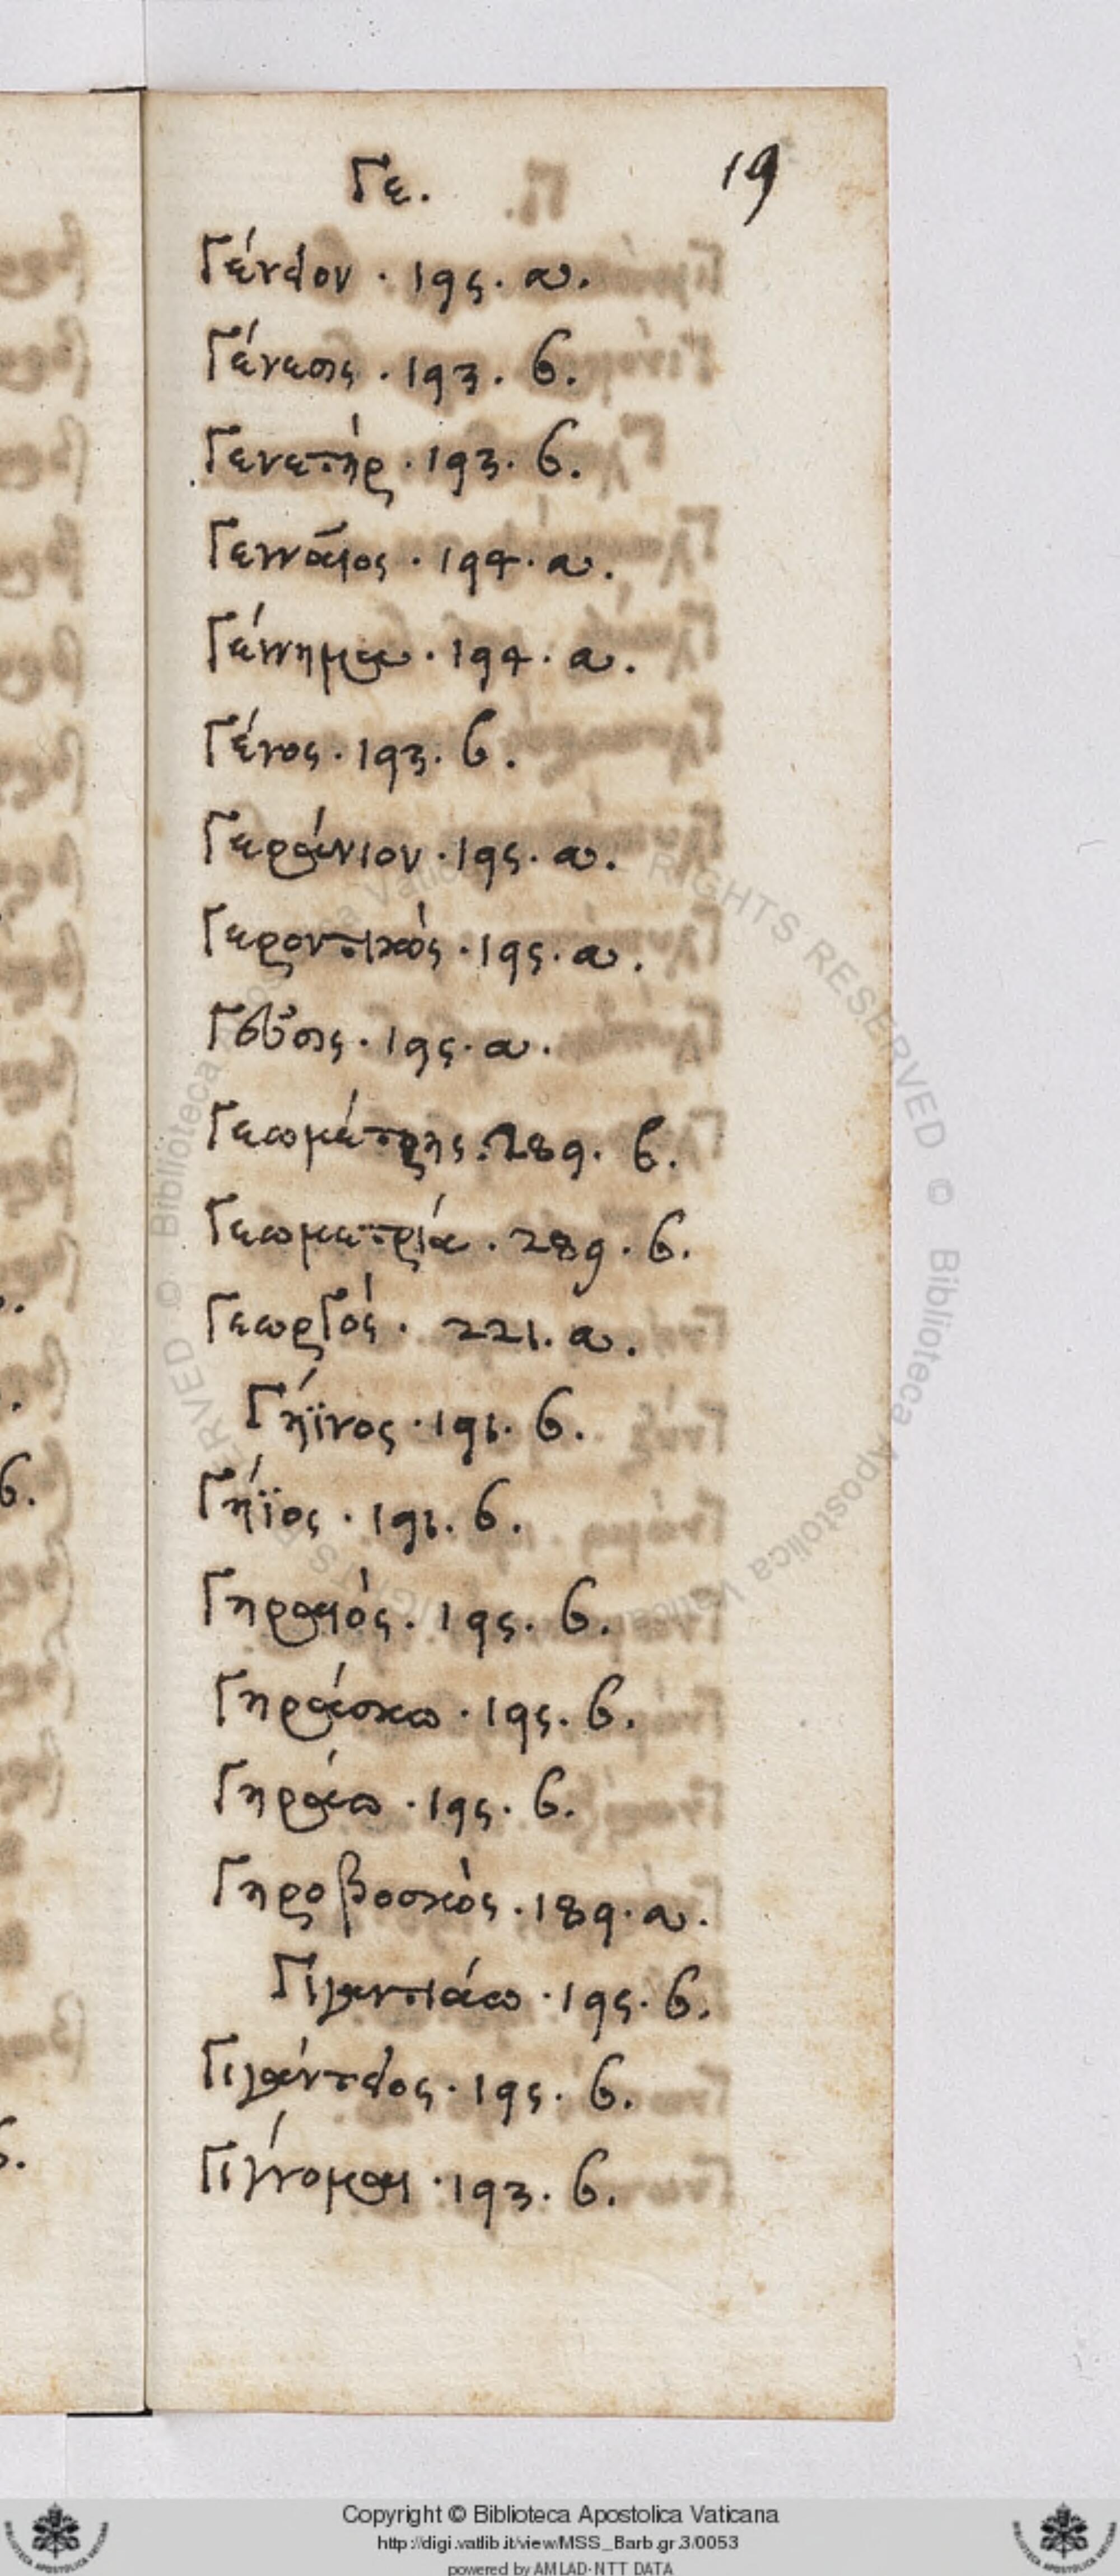 Γε. 19
Γένειον · 195. α.
Γένεσις · 193. β.
Γενετὴρ · 193. β.
Γενναῖος · 194. α.
Γέννημα · 194. α.
Γένος · 193. β.
Γεράνιον · 195. α.
Γεροντικὸς · 195. α.
Γεῦσις · 195. α.
Γεωμέτρης · 289. β.
Γεωμετρία · 289. β.
Γεωργὸς · 221. α.
Γήϊνος · 191. β.
Γήϊος · 191. β.
Γηραιὸς · 195. β.
Γηράσκω · 195. β.
Γηράω · 195. β.
Γηροβοσκὸς · 189. α.
Γιγαντιάω · 195. β.
Γιγάντειος · 195. β.
Γίγνομαι · 193. β.
Copyright © Biblioteca Apostolica Vaticana
http://digi.vatlib.it/view/MSS_Barb.gr.3/0053
powered by AMLAD-NTT DATA